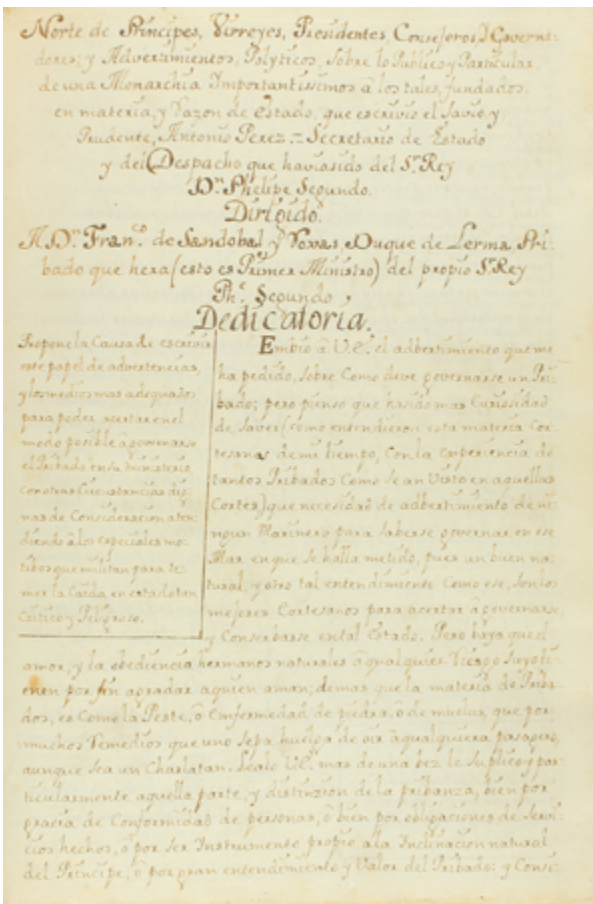 Norte de Principes, Virreyes, Presidentes, Consejeros, y Governa-
dores; y Advertimientos, Polyticos, Sobre lo Publico y Particular
de una Monarchia Importantissimos â los tales, fundados
en materia, y Razon de Estado, que escrivio el Savio, y
Prudente, Antonio Perez = Secretario de Estado
y del Despacho que haviasido del Sr. Rey
Dn. Phelipe Segundo.
Dirigido.
A Dn. Franco. de Sandobal y Roxas, Duque de Lerma, Pri-
bado que hera (esto es Primer Ministro) del propio Sr. Rey
Phe. Segundo,
Dedicatoria.
Propone la Causa de escrivir
este papel de advertencias,
y los medios mas adequados
para poder acertar en el
modo posible â governarse
el Pribado en su ministerio,
con otras Circustancias dig-
nas de Consideracion aten-
diendo â los especiales mo-
tibos que militan para te-
mer la Caida, en estado tan
Critico y Peligroso.
Embio â V.e. el adbertimiento que me
ha pedido, sobre Como deve governarse un Pri-
bado; pero pienso que ha sido mas Curiosidad
de Saver (como entendieron esta materia Cor-
tesanos de mi tiempo, Con la experiencia de
tantos Pribados Como se an Visto en aquellas
Cortes) que necesidad de adbertimiento de ni-
ngun Marinero para saberse governar en ese
Mar en que se halla metido, pues un buen na-
tural, y otro tal entendimiento Como ese, son los
mejores Cortesanos para acertar â governarse,
y Conserbarse en tal Estado. Pero haya que el
amor, y la obediencia hermanos naturales â qualquier Riesgo suyo ti-
enen por fin agradar a quien aman; demas que la materia de Priba-
dos, es Como la Peste, ô Emfermedad de piedra, ô de muelas, que por
muchos Remedios que uno sepa huelga de oir â qualquiera pasagero,
aunque sea un Charlatan. Lealo V.e. mas de una bez le suplico y par-
ticularmente aquella parte, y distinzion de la pribanza, bien por
gracia de Conformidad de personas, ô bien por obligaciones de Servi-
cios hechos, ô por ser Instrumento propio a la Inclinacion natural
del Principe, ô por gran entendimiento y Valor del Pribado: y Consi-